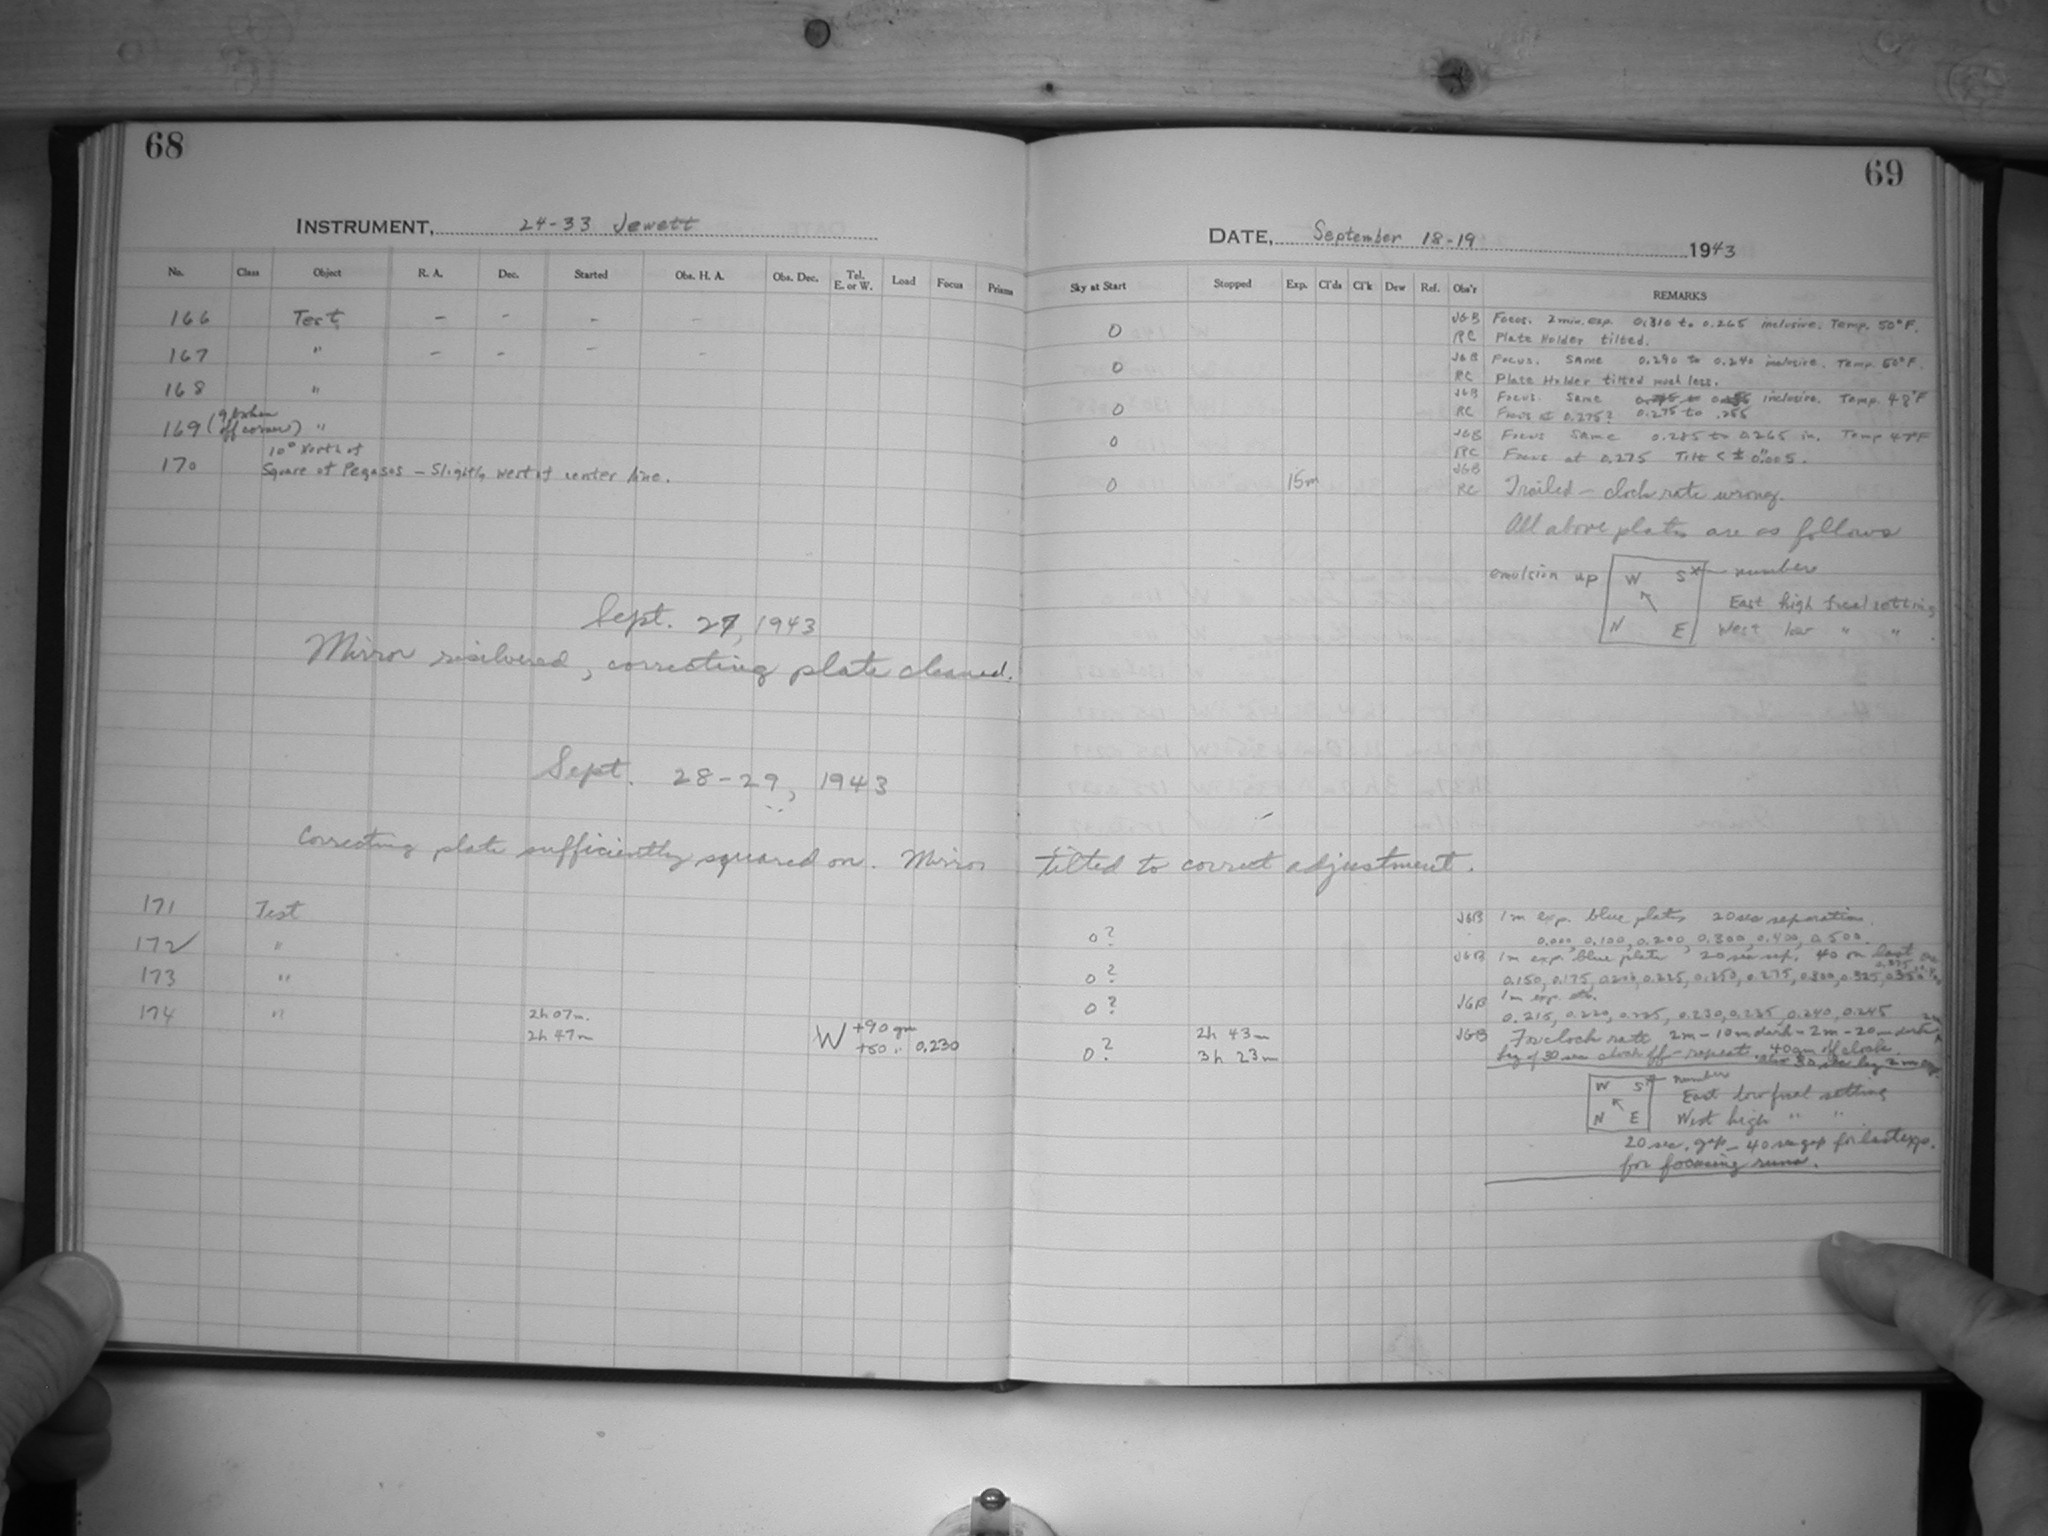 68
INSTRUMENT, 24-33 Jewett
No. Class Object R. A. Dec. Started Obs. H. A. Obs. Dec. Tel. E. or W. Load Focus Prisms
166 Test - - - -
167 " - - - -
168 "
169 ( off corner) "
10° North of
170 Square of Pegasos - Slightly West of center line.
Sept. 27, 1943
Mirror resilvered, correcting plate cleaned.
Sept. 28-29, 1943
Correcting plate sufficiently squared on. Mirror
171 Test
172 "
173 "
174 " 2h 07m. W +90 gm
2h 47m +50 " 0.230
69
DATE, September 18-19 1943
Sky at Start Stopped Exp. Cl'ds Cl'k Dew Ref. Obs'r REMARKS
0 JGB Focus. 2 min. exp. 0.310 to 0.265 inclusive. Temp. 50°F.
RC Plate Holder tilted.
0 JGB Focus. Same 0.290 to 0.240 inclusive. Temp. 50°F.
RC Plate Holder tilted much less.
0 JGB Focus. Same inclusive. Temp. 48°F
RC Focus at 0.275? 0.275 to .255
0 JGB Focus Same 0.285 to 0.265 in. Temp 47°F
RC Focus at 0.275 Tilt < ± 0".005.
JGB
0 15m RC Trailed - clock rate wrong.
All above plates are as follows
emulsion up W S* number
East high focal setting
N E West low " " .
tilted to correct adjustment.
JGB 1m exp. blue plates 20 sec separation.
0? 0.000, 0.100, 0.200, 0.300, 0.400, 0.500.
JGB 1m exp. blue plate 20 sec sep. 40 on last one
0? 0.150, 0.175, 0.200, 0.225, 0.250, 0.275, 0.300, 0.325, 0.350
0? JGB 1m exp. etc.
0.215, 0.220, 0.225, 0.230, 0.235, 0.240, 0.245
2h 43m JGB For clock rate 2m - 10m dark - 2m - 20m dark
0? 3h 23m leg of 30 sec clock off - repeat. 40gm off clock.
W S* number
East low focal setting
N E West high " " .
20 sec. gap - 40 sec gap for last expo.
for focusing runs.